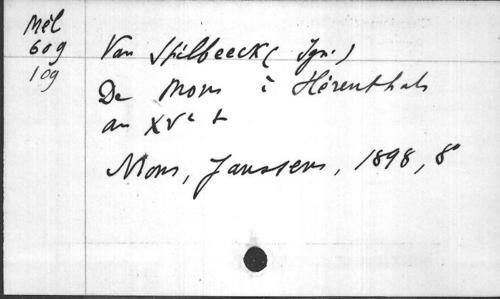 Mél
609
109
Van Spilbeeck (Ign.)
De Mons à Hérenthals
au XVe s
Mons, Janssens, 1898, 8°